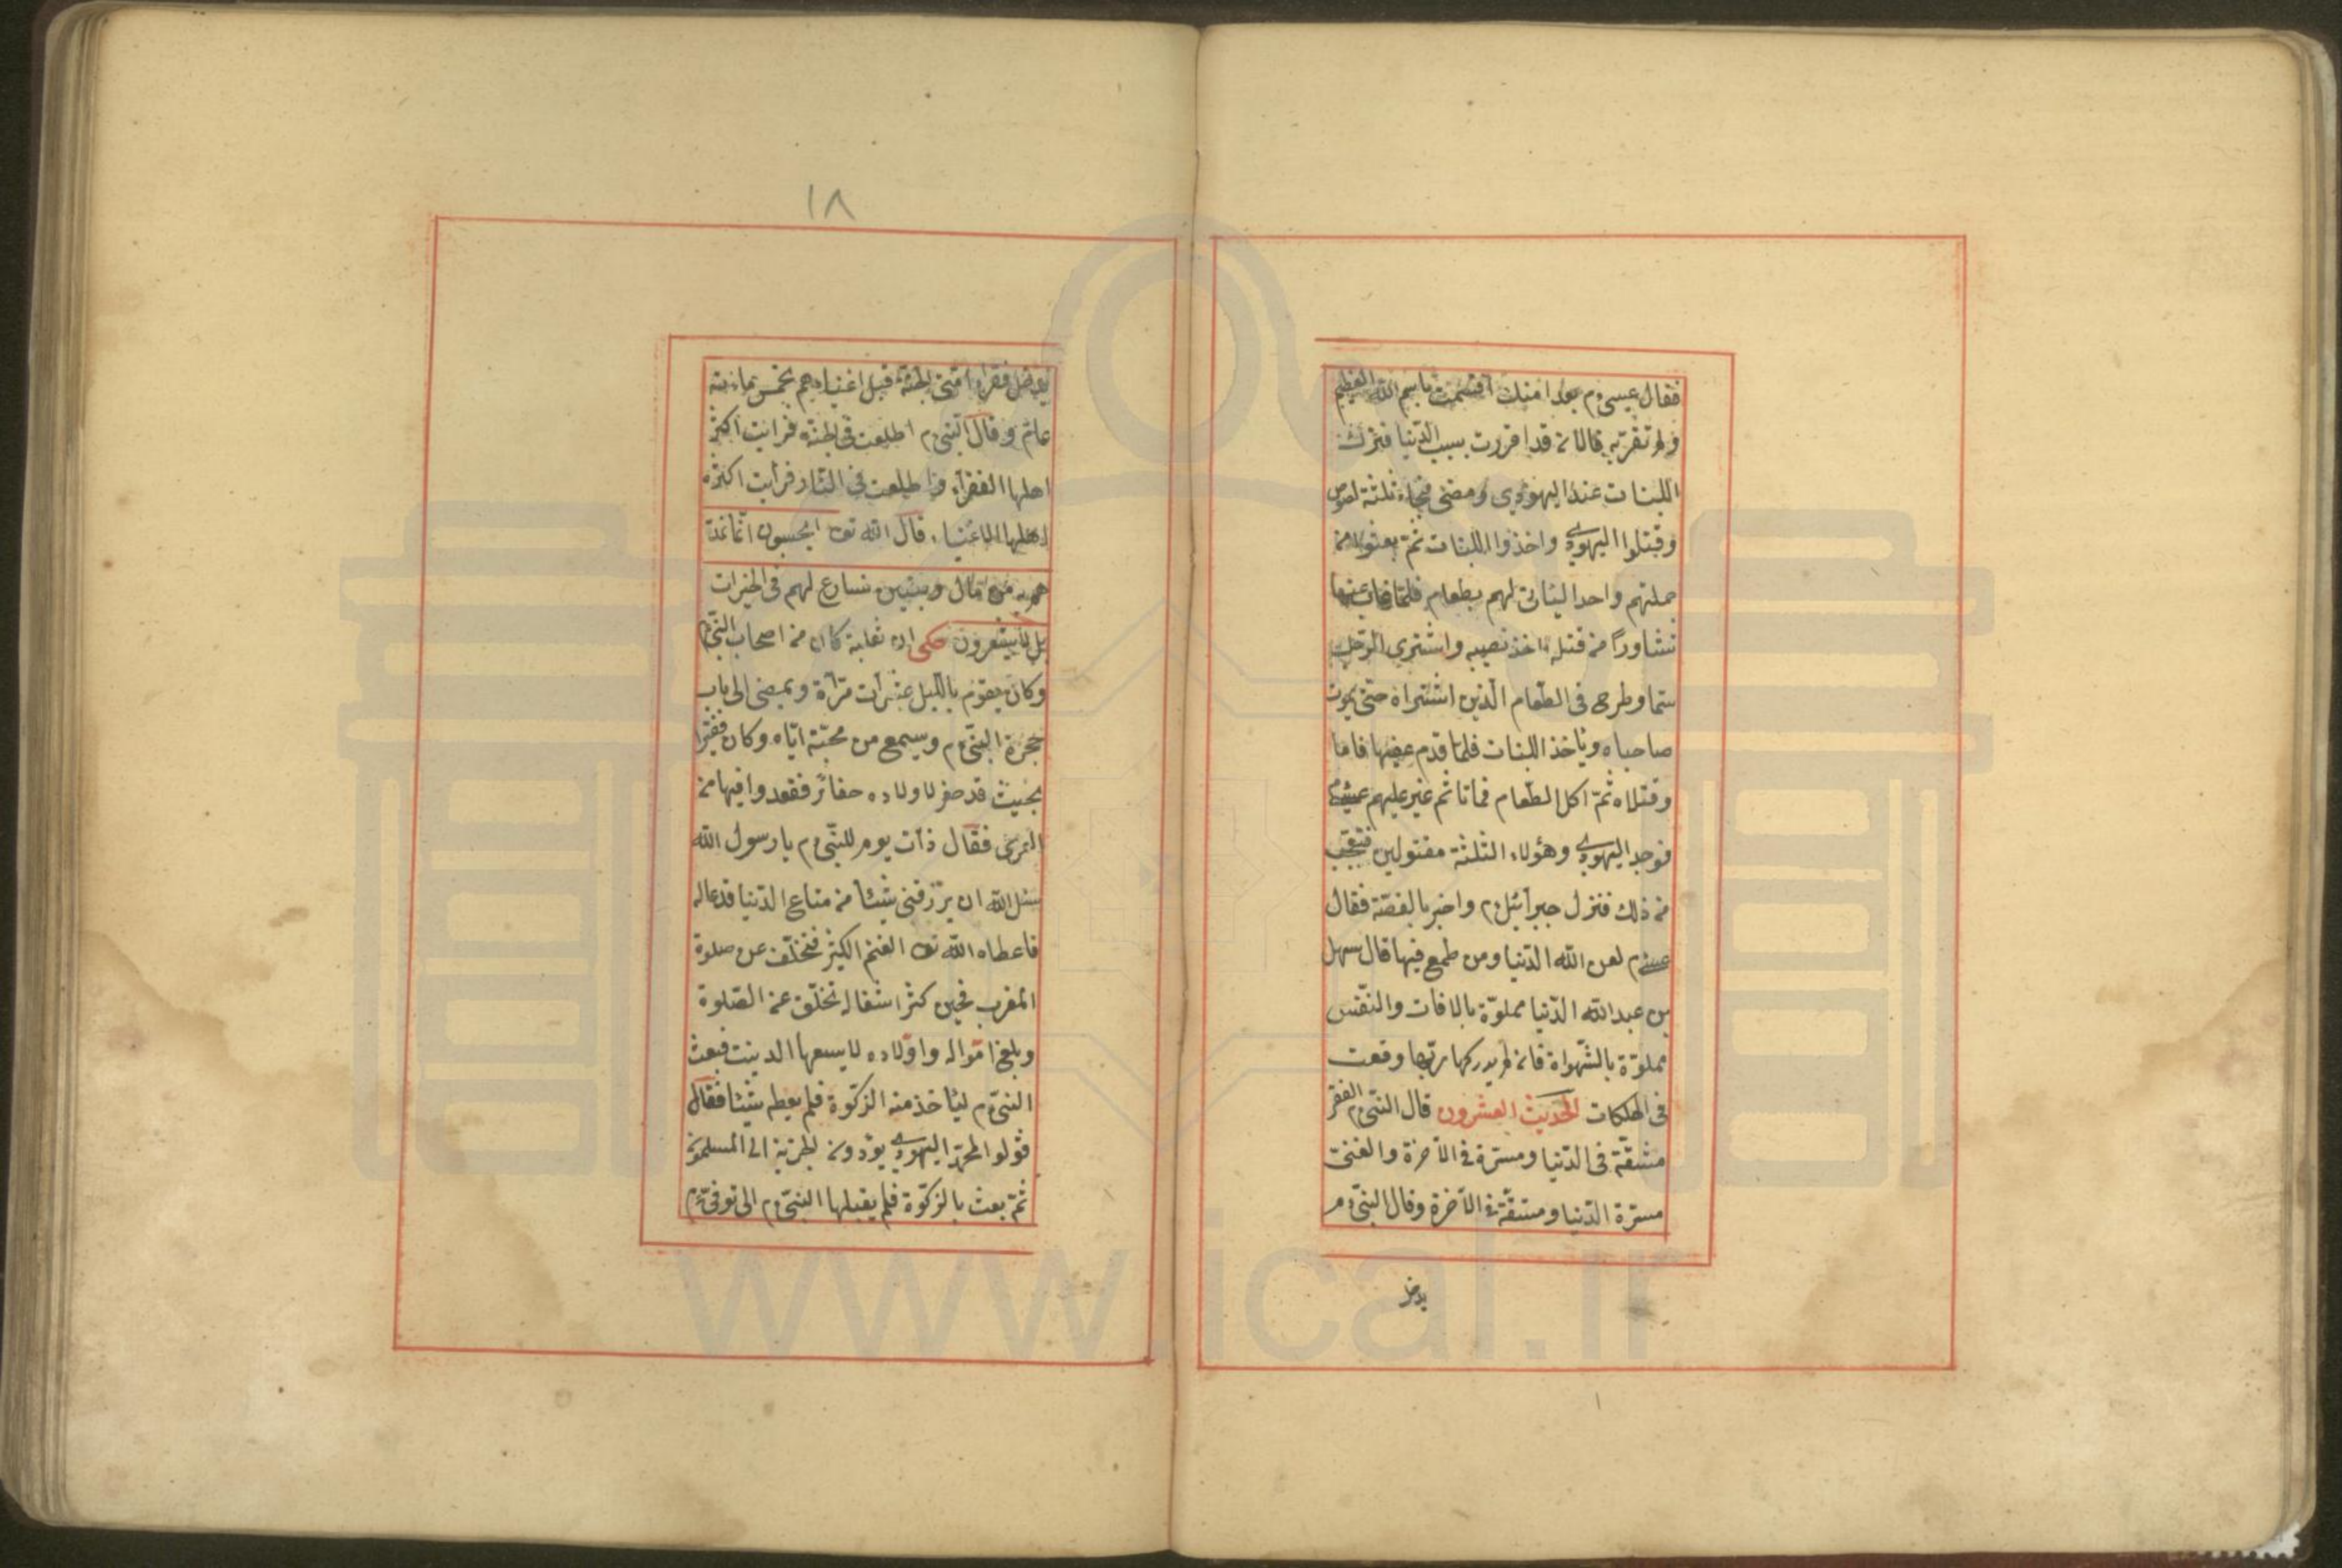 فقال عيسى م بعد امنك اقسمت باسم الله العظيم
ولم تقربه قال لانه قد اقررت بسبب الدّنيا فترك
اللبنات عند اليهودي ومضى فجاء ثلثة لصوص
وقتلوا اليهودي واخذوا اللبنات ثمّ بعثوا من
جملتهم واحدا ليئاتى لهم بطعام فلمّا غاب عنهما
تشاورا من قتله اخذ نصيبه واشترى الرّجل
سمّا وطرح فى الطّعام الّذين اشتراه حتّى يموت
صاحباه ويأخذ اللبنات فلمّا قدم عليهما قاما
وقتلاه ثمّ اكل الطّعام فماتا ثم غير عليهم عيسى
فوجد اليهودي وهؤلاء الثلثة مقتولين فتعجّب
من ذلك فنزل جبرآئيل م واخبر بالقصّة فقال
عيسى م لعن الله الدّنيا ومن طمع فيها قال سهل
بن عبد الله الدّنيا مملوّة بالافات والنّفس
مملوّة بالشّهواة فانه لم يدركها ربّها وقعت
فى الهلكات الحديث العشرون قال النّبىّ م الفقر
مشقّة فى الدّنيا ومسرّة فى الآخرة والغنىّ
مسرّة الدّنيا ومشقّة فى الآخرة وقال النبىّ م
يدخل
١٨
ليدخل فقرآء امّتى الجنّة قبل اغنياءهم بخمس مائة
عام وقال النّبى م اطلعت فى الجنّة فرايت اكثر
اهلها الفقرآء واطلعت فى النّار فرأيت اكثره
اهلها الاغنياء قال الله تعـ ايحسبون انّما نمدّ
هم به من مّال وبنين نسارع لهم فى الخيرات
بل لا يشعرون حكى ان ثعلبة كان من اصحاب النّبىّ م
وكان يقوم باللّيل عشرات مرّاة ويمضى الى باب
حجرة النبىّ م ويسمع من محبّة ايّاه وكان فقيرا
بحيث قد حفر لاولاده حفائر فقعدوا فيها من
العرى فقال ذات يوم للنّبىّ م يا رسول الله
سئل الله ان يرزقنى شيئا من متاع الدّنيا فدعاله
فاعطاه الله تعـ الغنم الكثير فتخلّف عن صلوة
المغرب فحين كثر اشغاله تخلّف عن الصّلوة
وبلغ امواله واولاده لا يسعها المدينت فبعث
النبىّ م ليئاخذ منه الزكوة فلم يعطه شيئا فقال
قولوا لمحمّد اليهودي يؤدونه الجزية الى المسلمون
ثمّ بعث بالزكوة فلم يقبلها النبىّ م الى توفى م
www.ical.ir